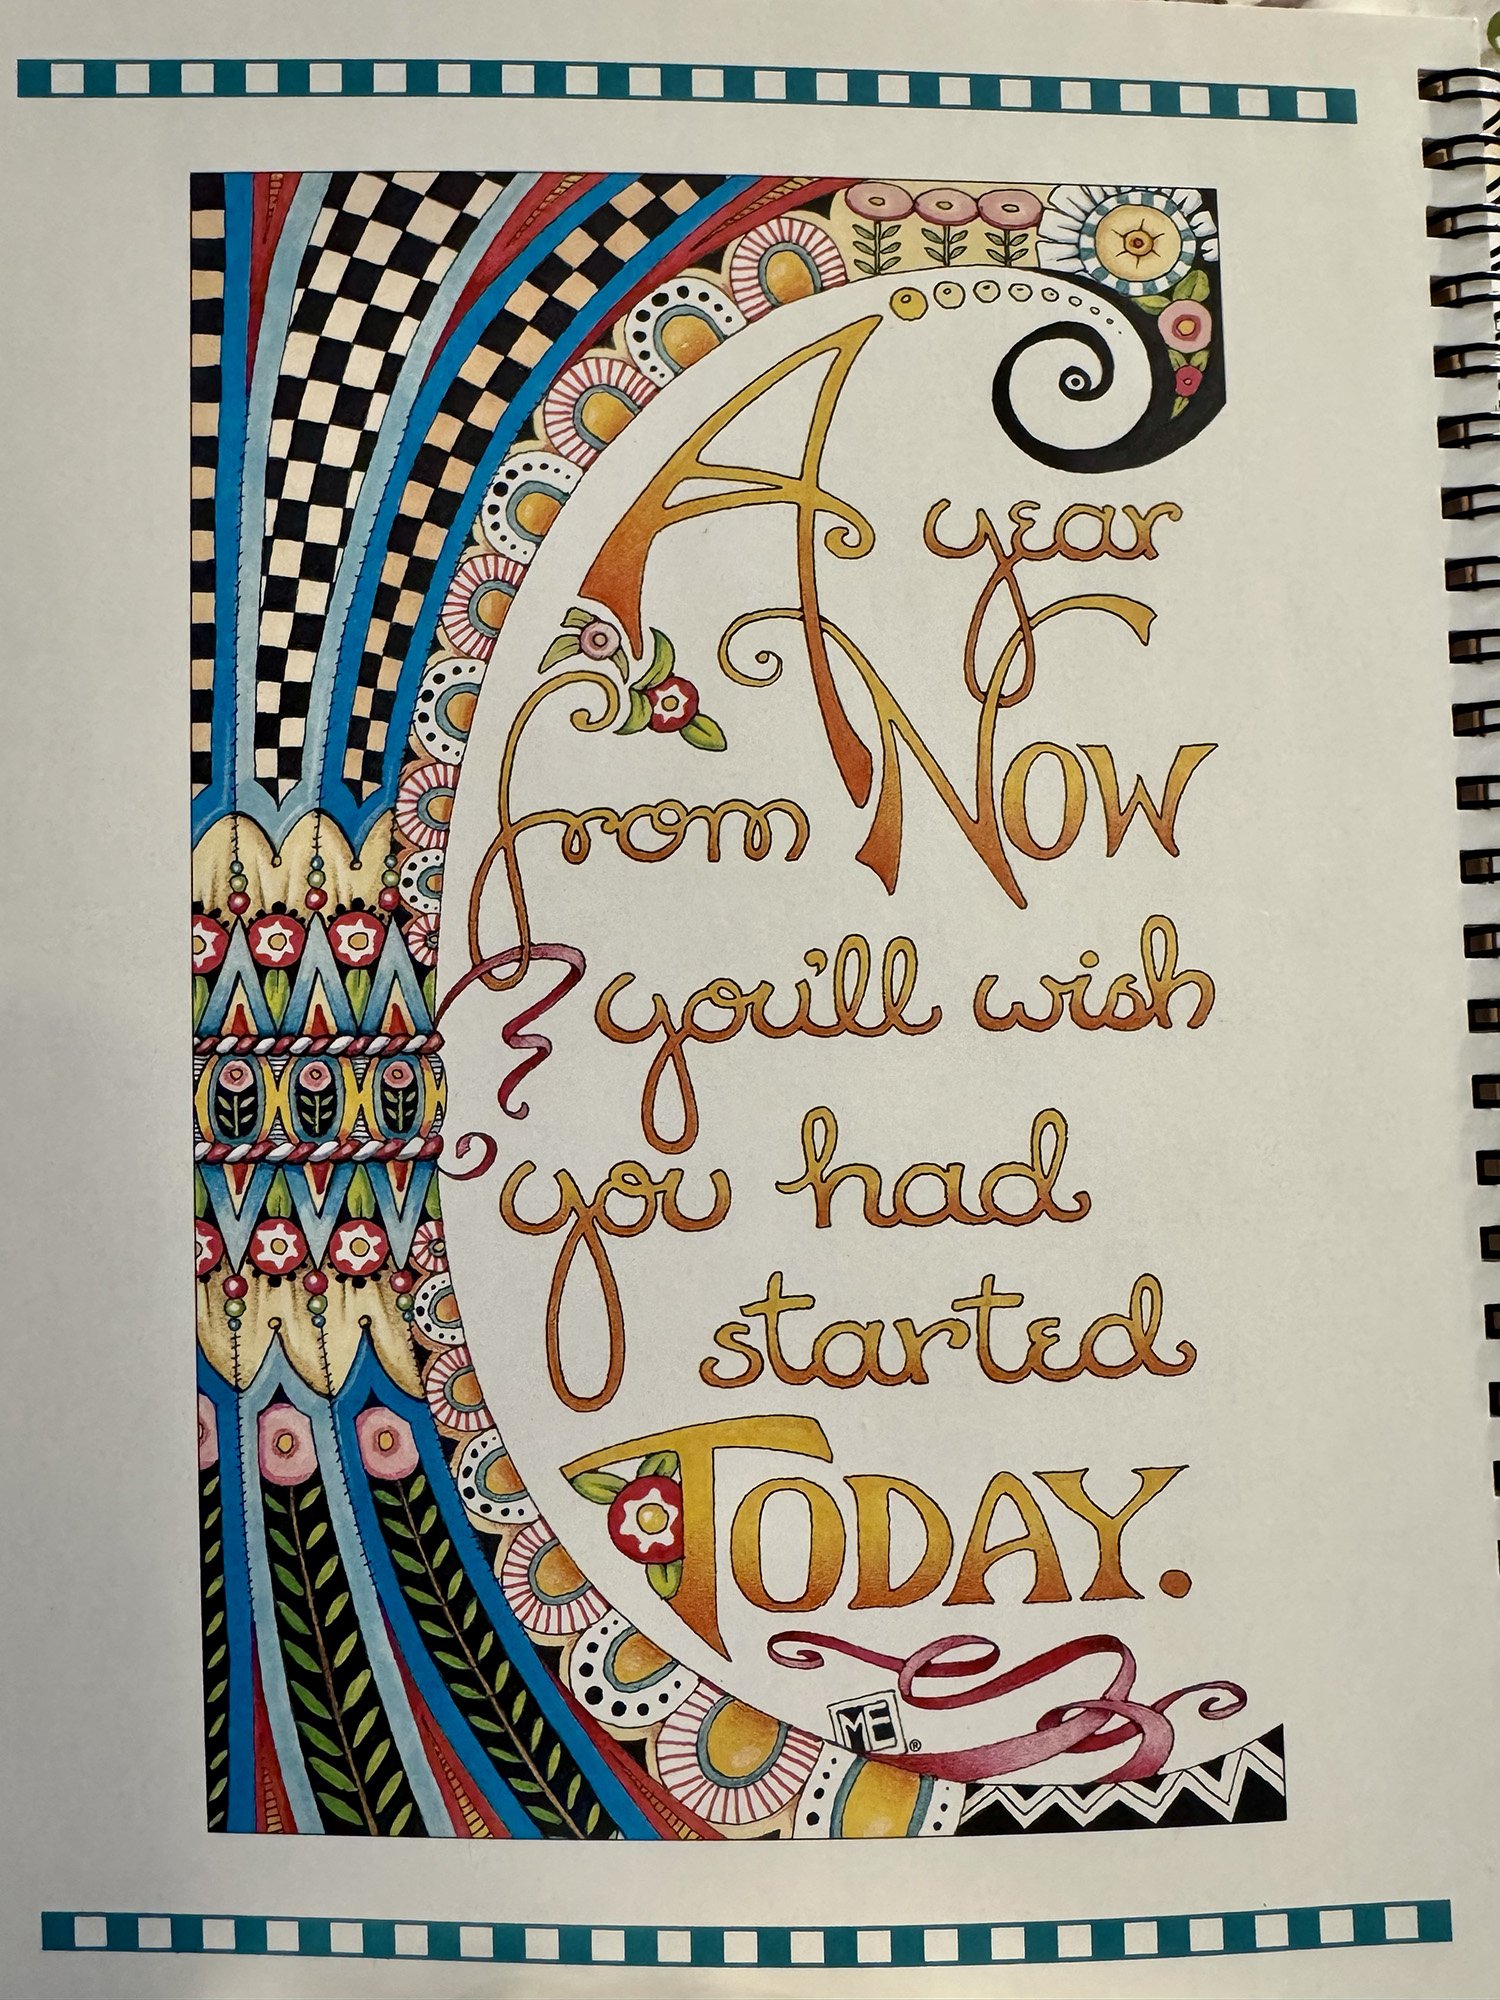 A year
from NOW
you'll wish
you had
started
TODAY.
ME®